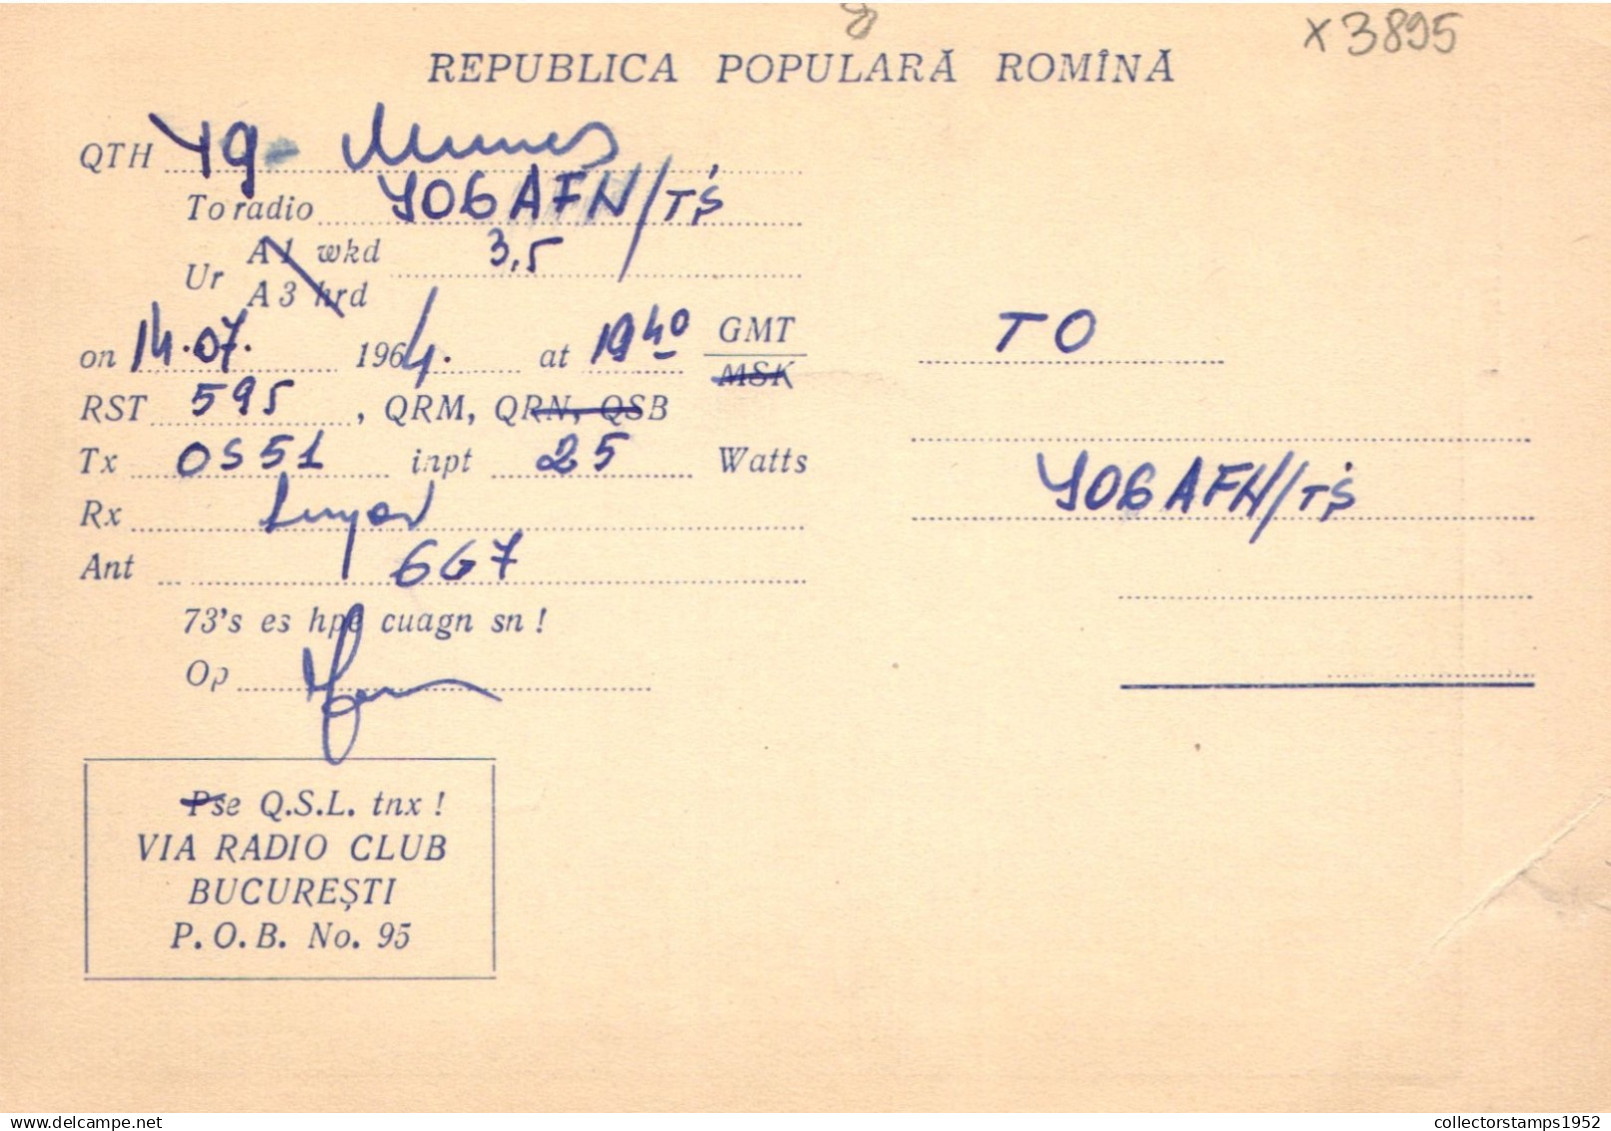 x 3895
REPUBLICA POPULARĂ ROMÎNĂ
QTH
To radio YO6AFN/TŞ
Ur A1 wkd 3,5
A3 hrd
on 14.07. 1964. at 19 40 GMT
MSK
RST 595, QRM, QRN, QSB
Tx OS51 inpt 25 Watts
Rx
Ant G67
73's es hpe cuagn sn !
Op
Pse Q.S.L. tnx !
VIA RADIO CLUB
BUCUREŞTI
P.O.B. No. 95
TO
YO6AFN/TŞ
collectorstamps1952